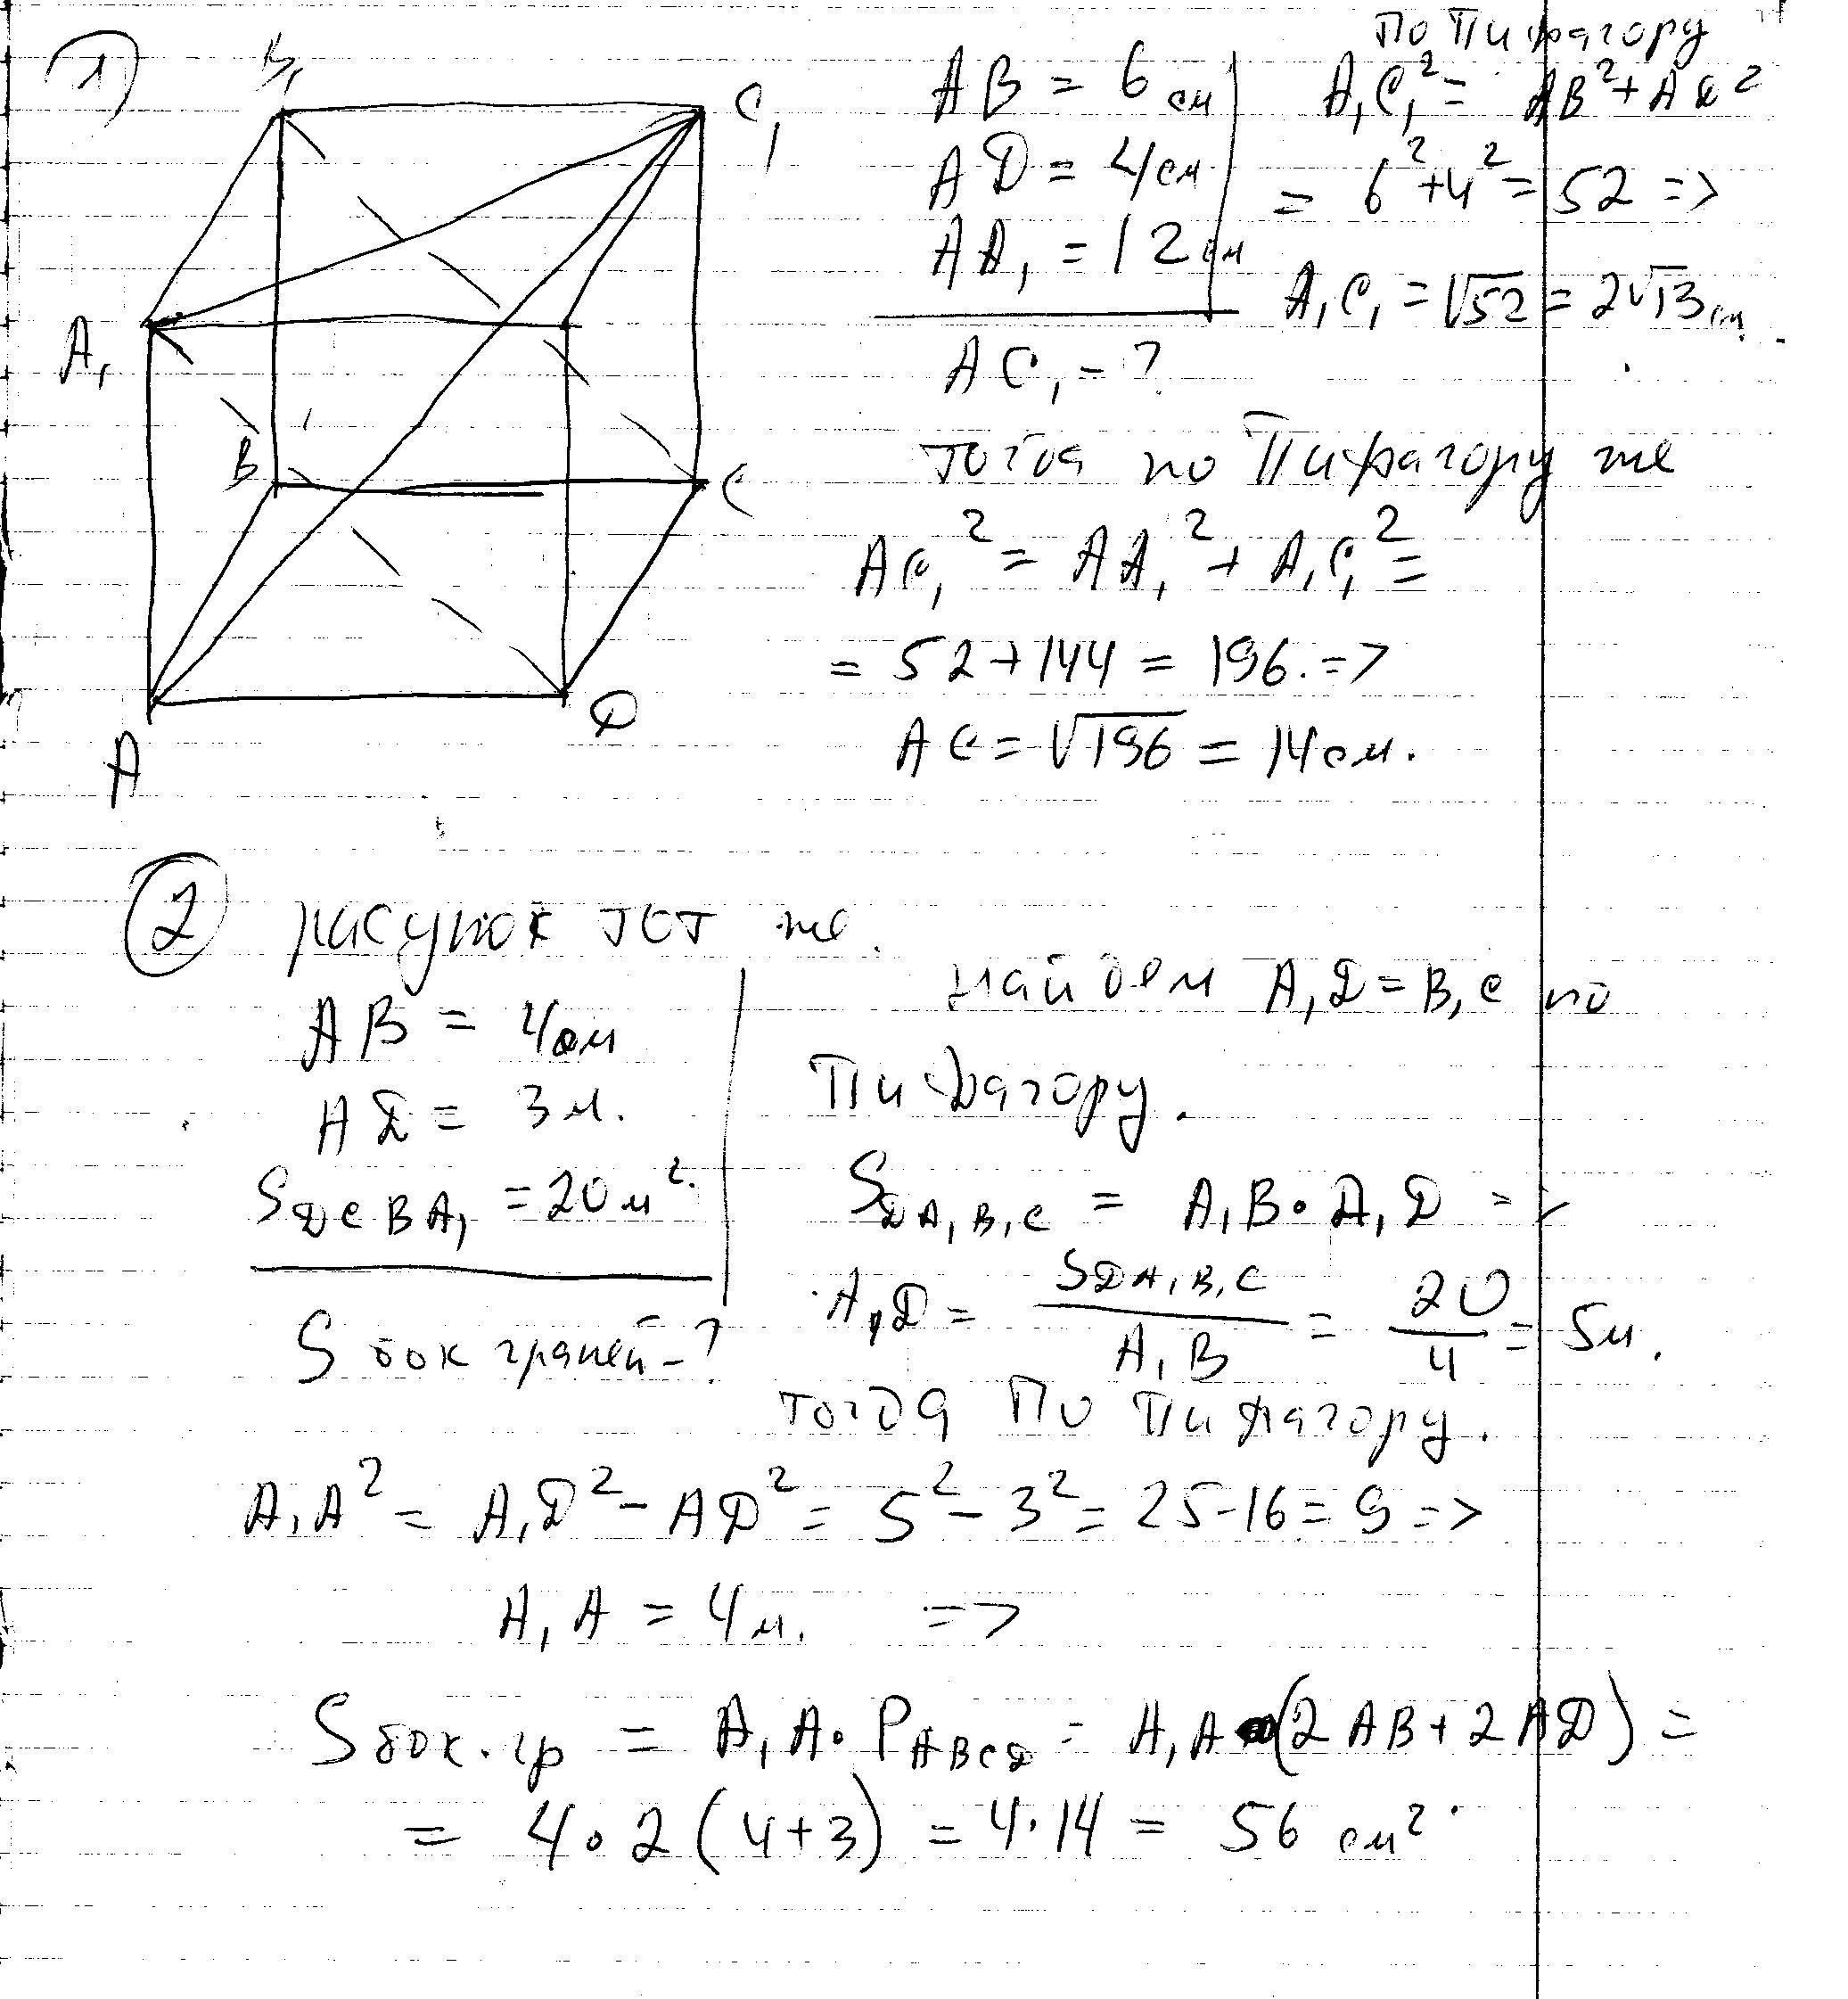 1)
B₁
C₁
A₁
B
C
A
D
AB = 6 см
AD = 4 см
AA₁ = 12 см
AC₁ - ?
По Пифагору
A₁C₁² = AB² + AD²
= 6² + 4² = 52 =>
A₁C₁ = √52 = 2√13 см.
тогда по Пифагору же
AC₁² = AA₁² + A₁C₁² =
= 52 + 144 = 196. =>
AC = √196 = 14 см.
2 рисунок тот же.
AB = 4 см
AD = 3 м.
S DCBA₁ = 20 м².
S бок граней - ?
найдем A₁D = B₁C по
Пифагору.
S DA₁B₁C = A₁B · A₁D =>
A₁D = S DA₁B₁C / A₁B = 20 / 4 = 5 м.
тогда По Пифагору.
A₁A² = A₁D² - AD² = 5² - 3² = 25 - 16 = 9 =>
A₁A = 4 м. =>
S бок. гр = A₁A · P ABCD = A₁A (2AB + 2AD) =
= 4 · 2 (4 + 3) = 4 · 14 = 56 см².